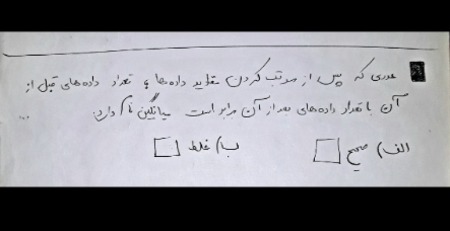 عددی که پس از مرتب کردن مقادیر داده‌ها، تعداد داده‌های قبل از
آن با تعداد داده‌های بعد از آن برابر است میانگین نام دارد. ...
الف) صحیح ب) غلط